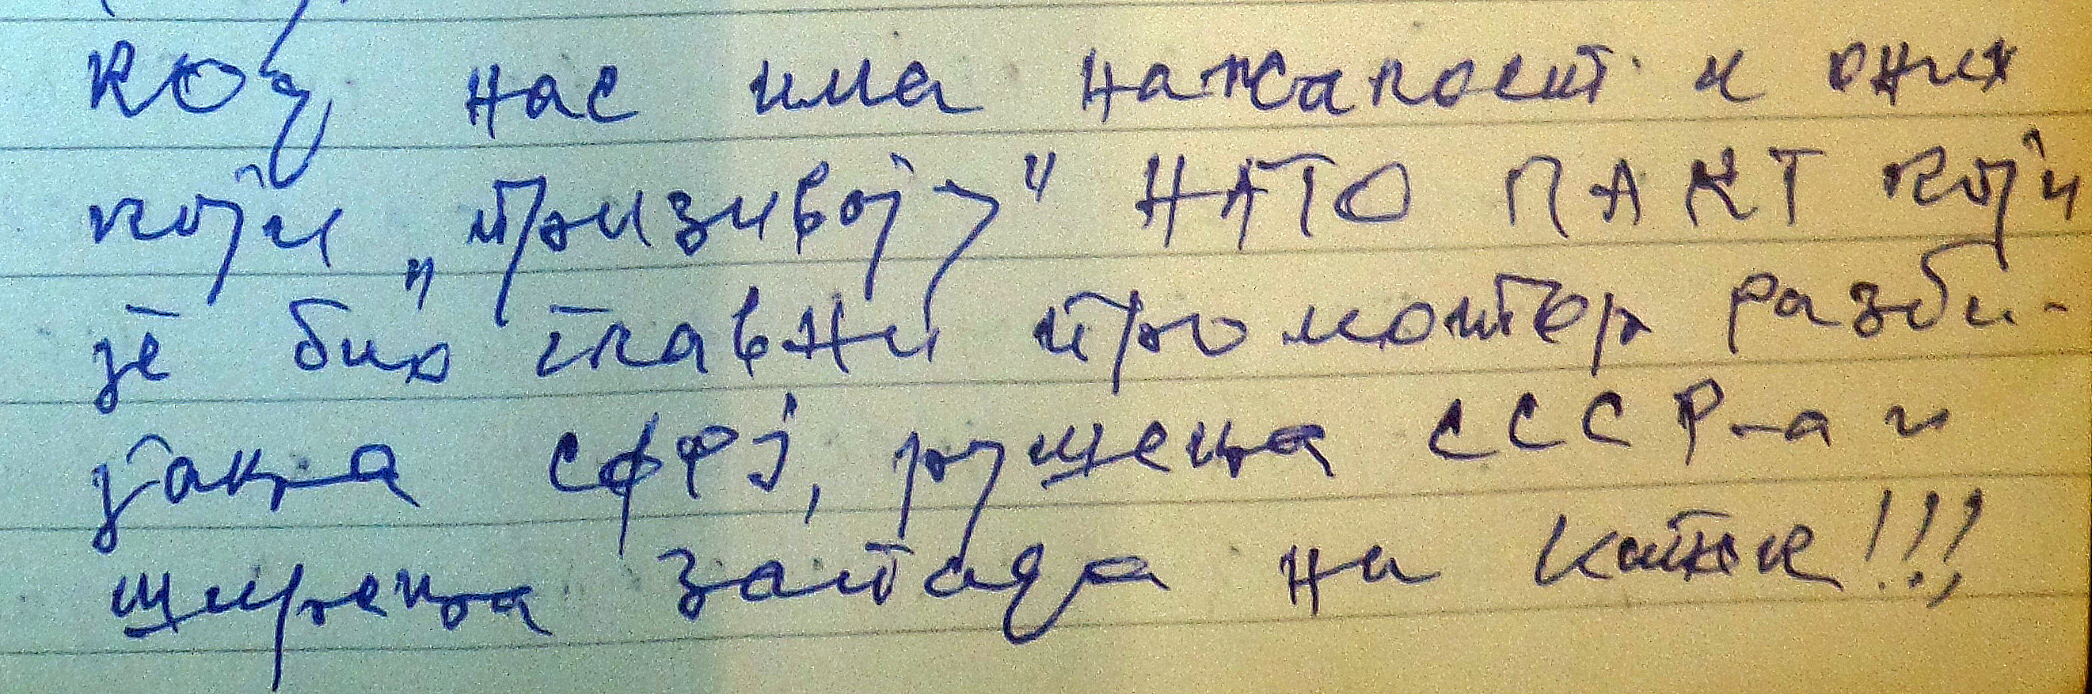 код нас има нажалост и оних
који „призивају" НАТО ПАКТ који
је био главни промотор разби-
јања СФРЈ, рушења СССР-а и
ширења запада на исток!!!